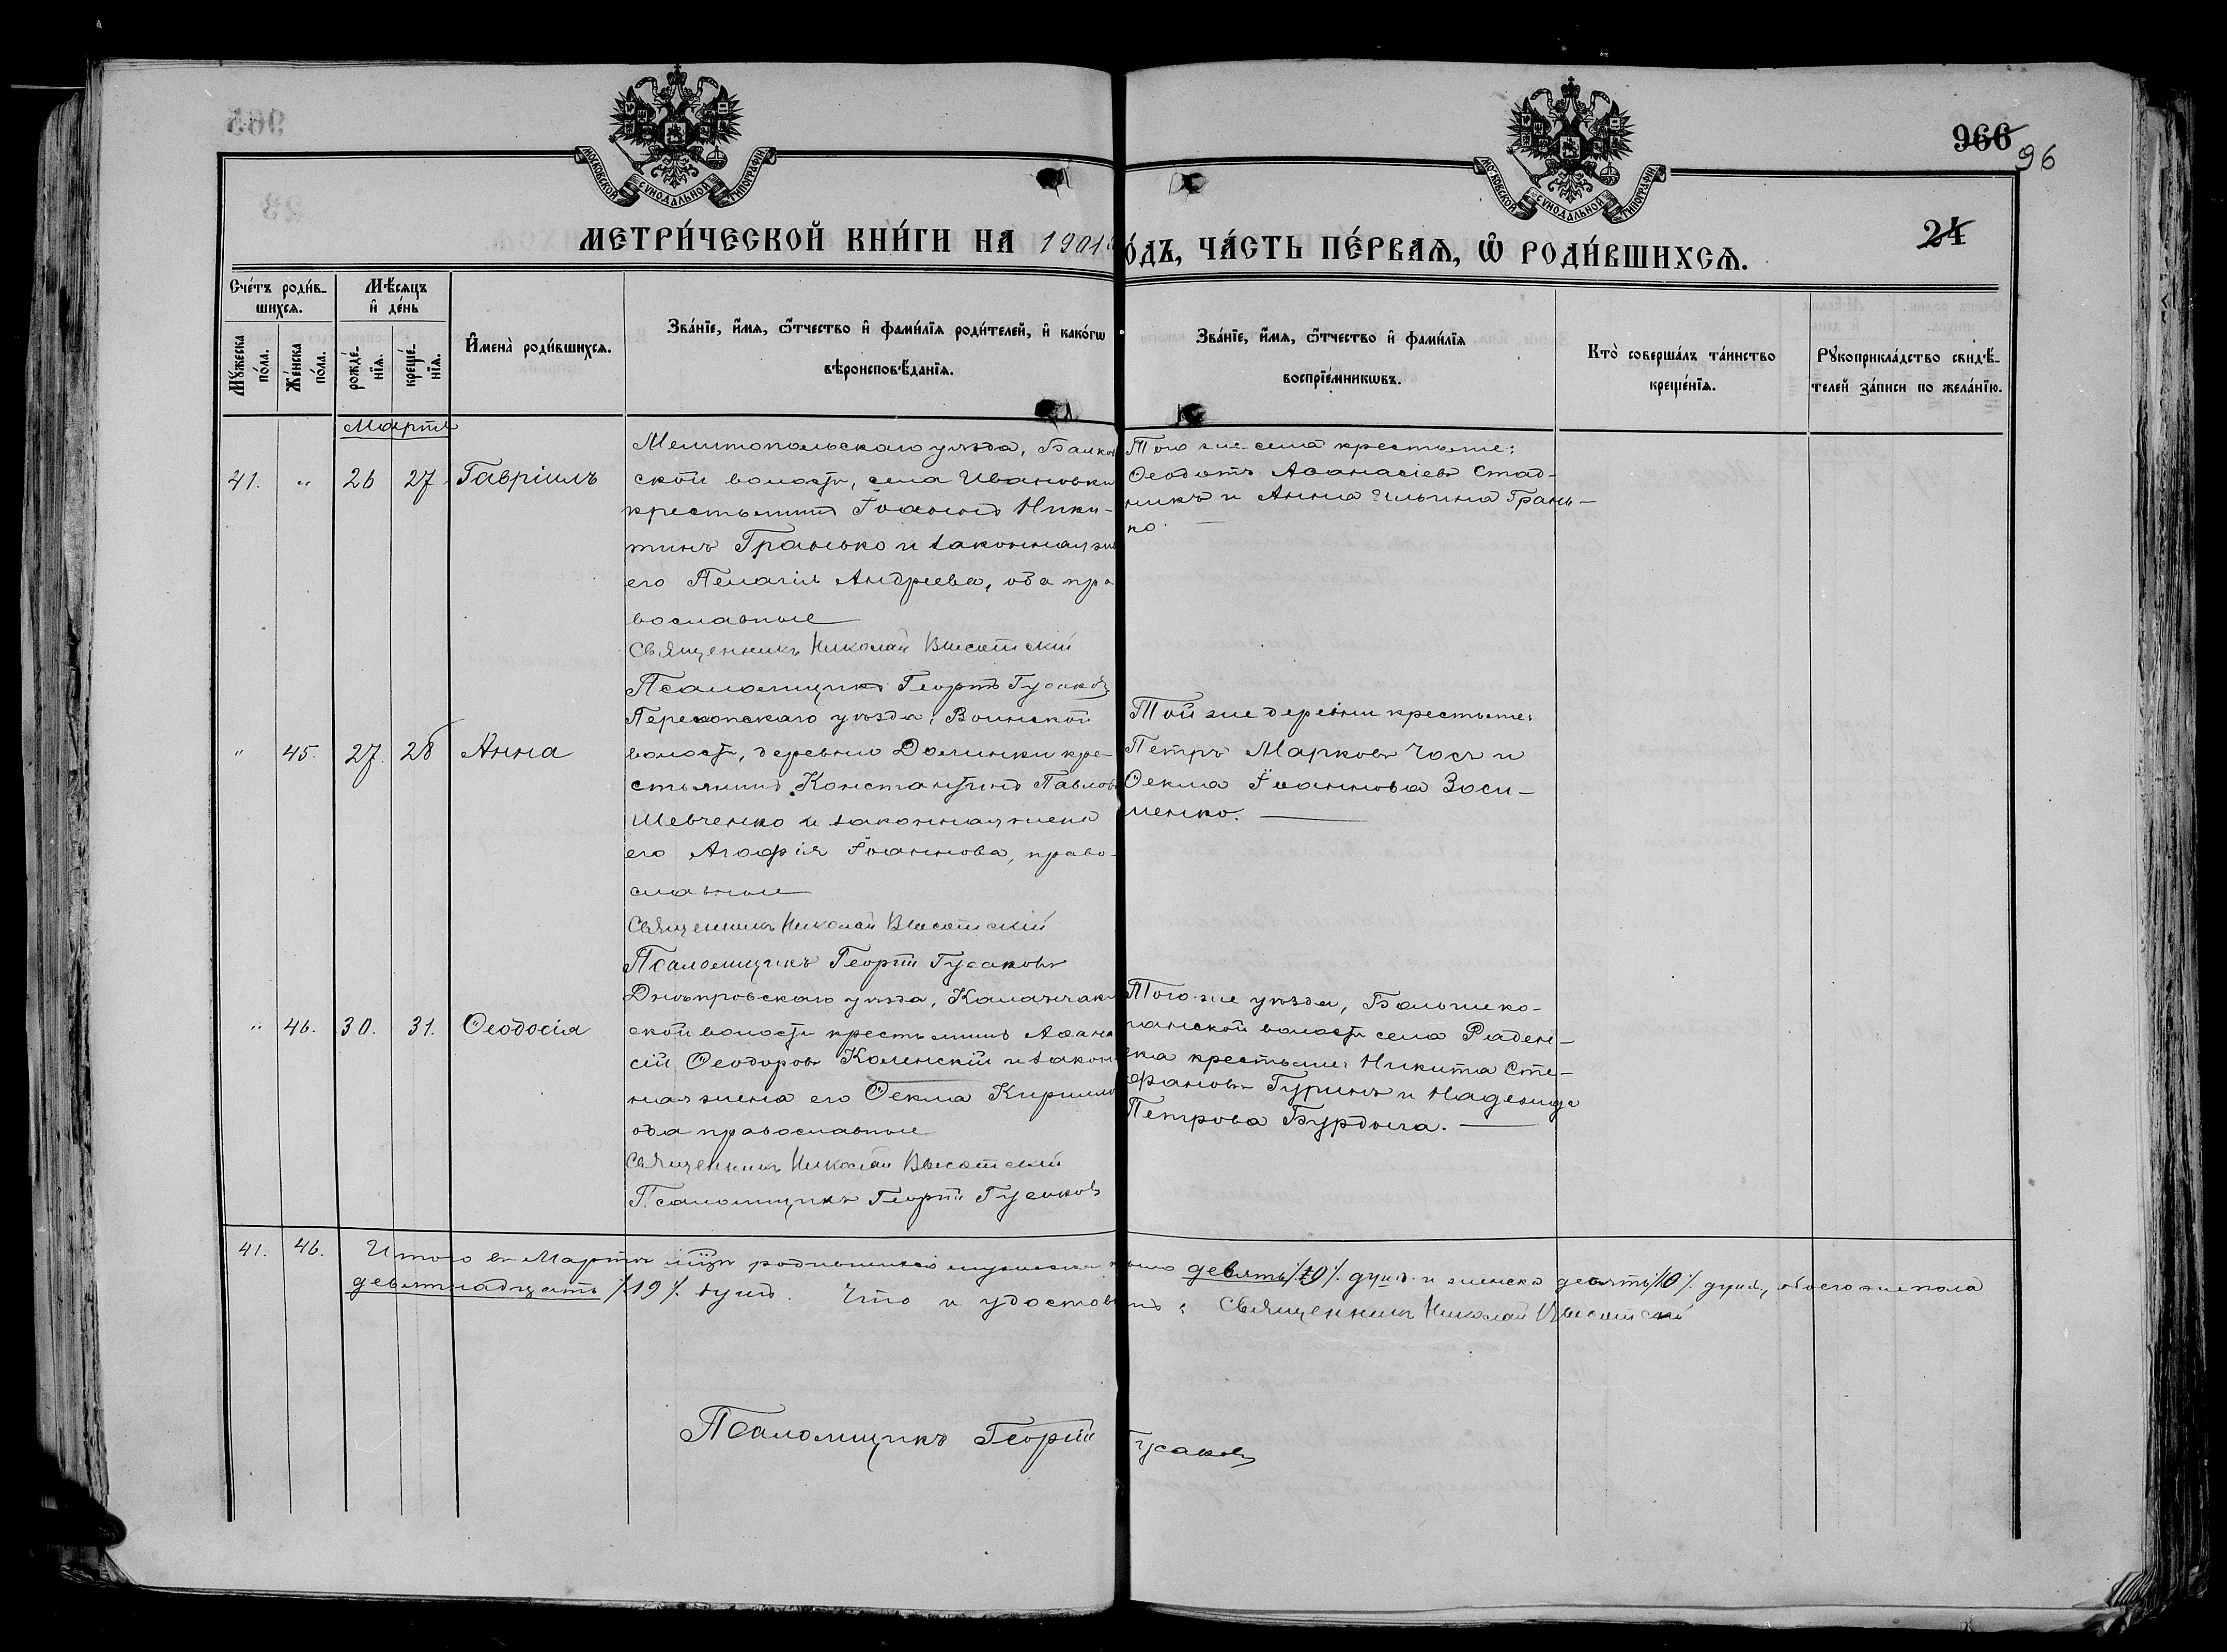 966
96
24
МОСКОВСКОЙ СѴНОДАЛЬНОЙ ТИПОГРАФІИ
МОСКОВСКОЙ СѴНОДАЛЬНОЙ ТИПОГРАФІИ
МЕТРИ́ЧЕСКОЙ КНИ́ГИ НА 1901
О́ДЪ, ЧА́СТЬ ПЕ́РВАѦ, Ѽ РОДИ́ВШИХСѦ.
Сче́тъ роди́в-
шихсѧ.
Мꙋ́жеска по́ла.
Же́нска по́ла.
Мѣ́сѧцъ и҆ де́нь
рожде́-
нїѧ.
креще́-
нїѧ.
И҆мена̀ роди́вшихсѧ.
Зва́нїе, и҆́мѧ, ѻ҆́тчество и҆ фами́лїѧ роди́телей, и҆ како́гѡ
вѣроисповѣ́данїѧ.
Зва́нїе, и҆́мѧ, ѻ҆́тчество и҆ фами́лїѧ
воспрїе́мникѡвъ.
Кто̀ соверша́лъ та́инство
креще́нїѧ.
Рꙋкоприкла́дство свидѣ́-
телей за́писи по жела́нїю.
Марта
41. " 26 27 Гавріилъ
Мелитопольскаго уѣзда, Балков
ской волости, села Ивановки
крестьянинъ Іоаннъ Ники-
тинъ Гранько и законная же
его Пелагія Андреева, оба пра
вославные
Священникъ Николай Высотскій
Псаломщикъ Георгій Гусаковъ
Того же села крестьяне:
Ѳеодотъ Аѳанасіевъ Стад-
никъ и Анна Ильина Грань-
ко.
" 45. 27. 28 Анна
Перекопскаго уѣзда, Воинской
волости, деревни Долинки кре-
стьянинъ Константинъ Павловъ
Шевченко и законная жена
его Агафія Іоаннова, право-
славные
Священникъ Николай Высотскій
Псаломщикъ Георгій Гусаковъ
Той же деревни крестьяне:
Петръ Марковъ Чосъ и
Ѳекла Іоаннова Заси-
менко.
" 46. 30. 31. Ѳеодосія
Днѣпровскаго уѣзда, Каланчак
ской волости крестьянинъ Аѳана
сій Ѳеодоровъ Каленскій и закон
ная жена его Ѳекла Кирилло
оба православные
Священникъ Николай Высотскій
Псаломщикъ Георгій Гусаковъ
Того-же уѣзда, Больше ко-
панской волости села Раден-
ска крестьяне: Никита Сте-
фановъ Гуринъ и Надежда
Петрова Бурдыга.
41. 46. Итого въ Мартѣ мѣсяцѣ родившихся мужеска пола девять /9/. душъ и женска десять /10/. душъ, обоего же пола
девятнадцать /19/. душъ. Что и удостовѣряютъ: Священникъ Николай Высотскій
Псаломщикъ Георгій Гусаковъ